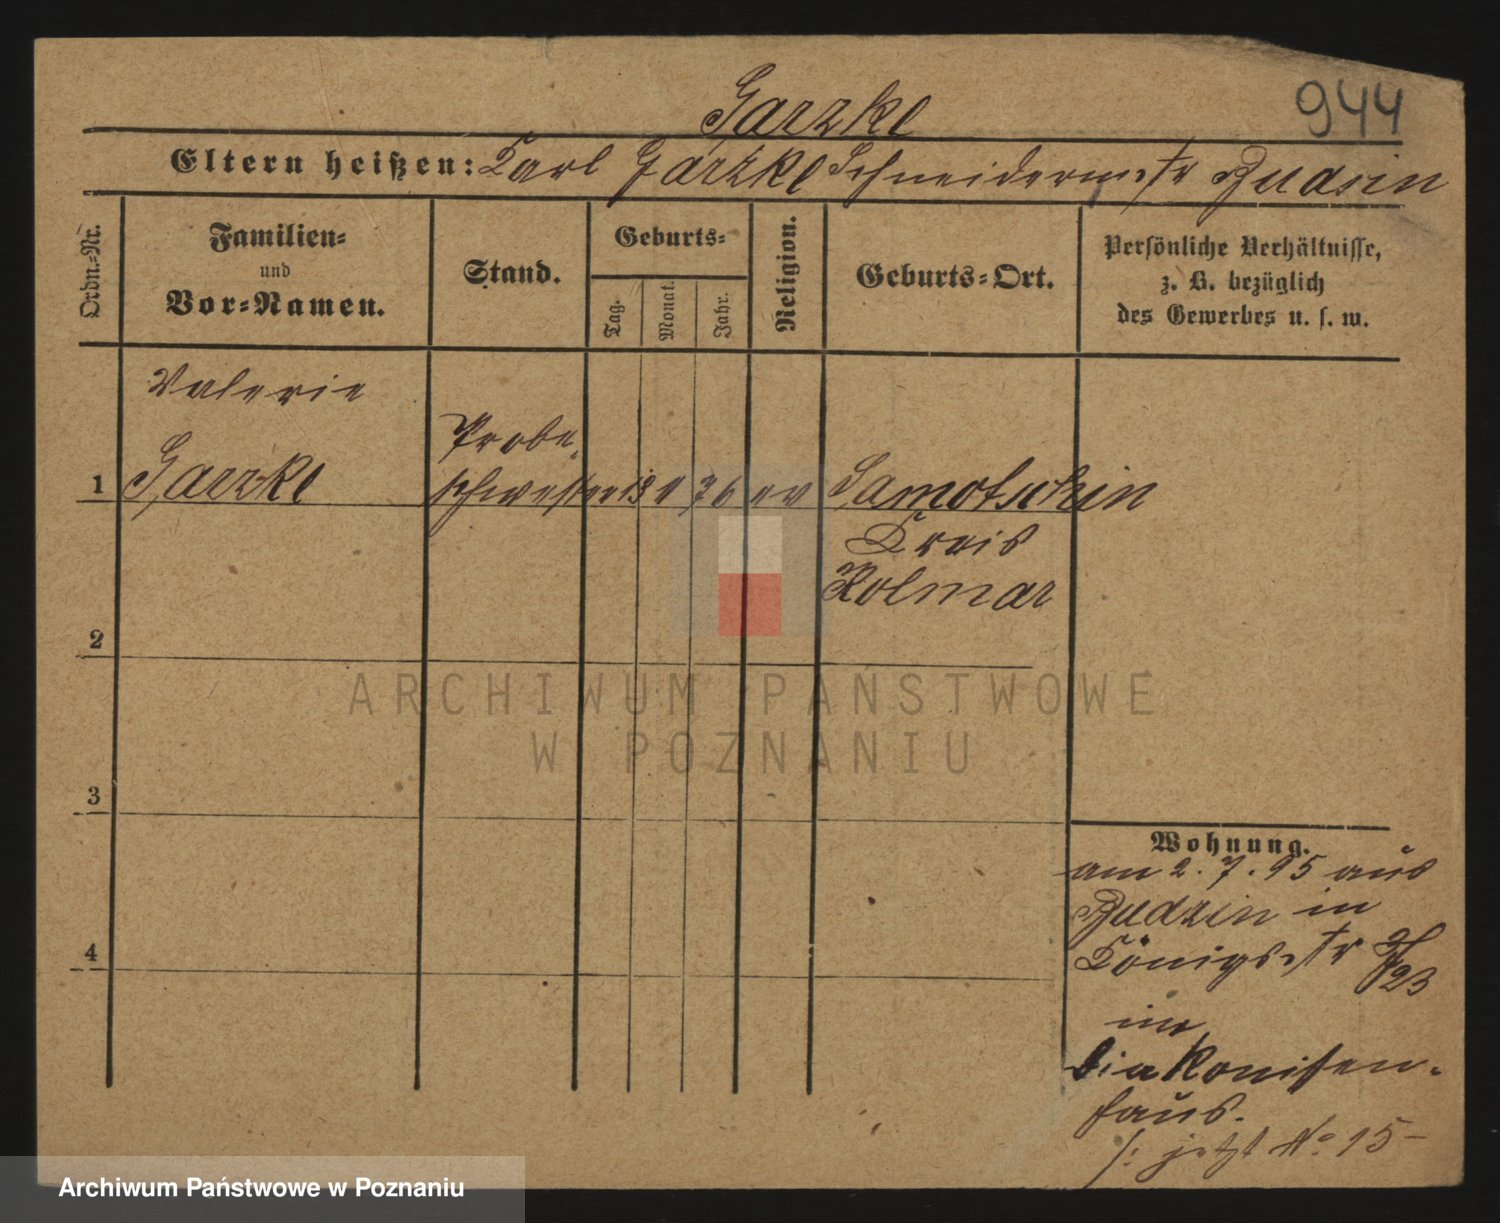 Garzke
944
Eltern heißen: Carl Garzke Schneidermstr Budsin
Ordn.-Nr.
Familien-
und
Vor-Namen.
Stand.
Geburts-
Tag.
Monat.
Jahr.
Religion.
Geburts-Ort.
Persönliche Verhältnisse,
z. B. bezüglich
des Gewerbes u. s. w.
Valerie
Probe
1 Garzke schwester 13 1 76 ev Samotschin
Kreis
Kolmar
2
3
4
Wohnung.
am 2. 7. 95 aus
Budzin in
Königsstr
im
Diakonissen-
haus.
/: jetzt No 15-
ARCHIWUM PAŃSTWOWE
W POZNANIU
Archiwum Państwowe w Poznaniu